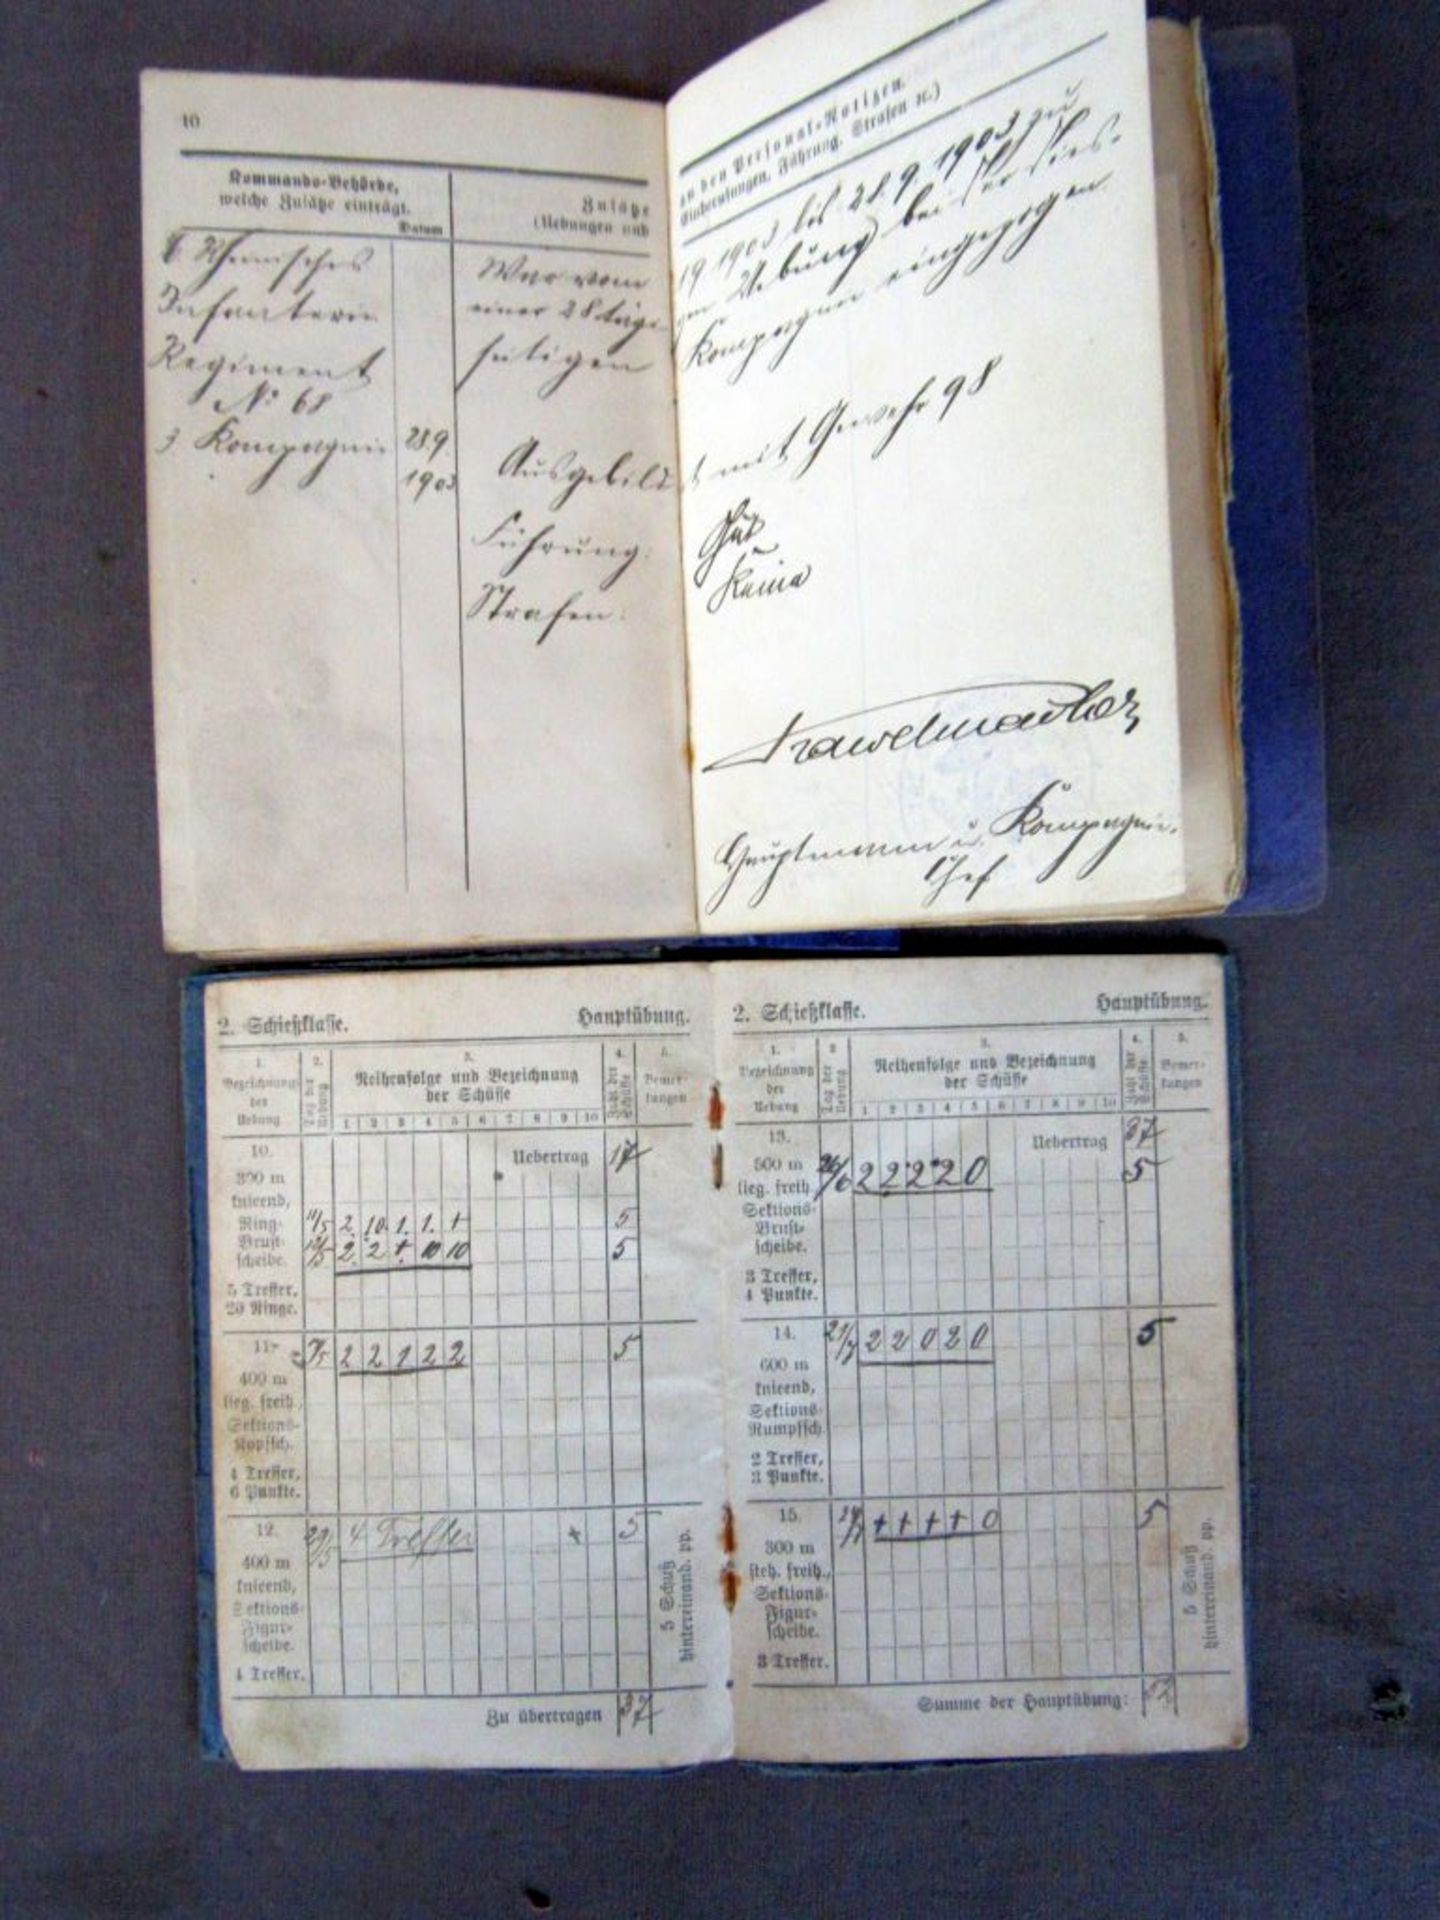 10
Kommando-Behörde,
welche Zusätze einträgt.
Datum
6. Rheinisches
Infanterie
Regiment
No 68
3 Kompagnie
28.9.
1903
Zusätze
(Uebungen und
War vom
einer 28 tägi
seitigen
Ausgebild
Führung:
Strafen:
zu den Personal-Notizen.
Einberufungen, Führung, Strafen 2c.)
9 1903 bis 28.9.1903 zu
gen Uebung bei der dies-
Kompagnie eingezogen.
t mit Gewehr 98
Gut
Keine
Hauptmann u. Kompagnie-
Chef
2. Schießklasse. Hauptübung.
1. 2. 3. 4. 5.
Bezeichnung
der
Uebung
Tag der
Uebung
Reihenfolge und Bezeichnung
der Schüsse
1 2 3 4 5 6 7 8 9 10
Zahl der
Schüsse
Bemer-
kungen
10. Uebertrag 17
300 m
knieend,
Ring- 11/5 2. 10. 1. 1. + 5
Brust- 2. 2 +. 10 10 5
scheibe.
5 Treffer,
20 Ringe.
11. 2 2 1 2 2 5
400 m
lieg. freih.,
Sektions-
Kopfsch.
4 Treffer,
6 Punkte.
12. 29/5 4 Treffer + 5
400 m
knieend,
Sektions-
Figur-
scheibe.
4 Treffer.
5 Schuß
hintereinand. pp.
Zu übertragen 37
2. Schießklasse. Hauptübung.
1. 2 3. 4. 5.
Bezeichnung
der
Uebung
Tag der
Uebung
Reihenfolge und Bezeichnung
der Schüsse
1 2 3 4 5 6 7 8 9 10
Zahl der
Schüsse
Bemer-
kungen
13. Uebertrag 37
500 m 26/6 2 2 2 2 0 5
lieg. freih.
Sektions-
Brust-
scheibe.
3 Treffer,
4 Punkte.
14. 21/7 2 2 0 2 0 5
600 m
knieend,
Sektions-
Rumpfsch.
2 Treffer,
3 Punkte.
15. + + + + 0 5
300 m
steh. freih.,
Sektions-
Figur-
scheibe.
3 Treffer.
5 Schuß
hintereinand. pp.
Summe der Hauptübung: 52